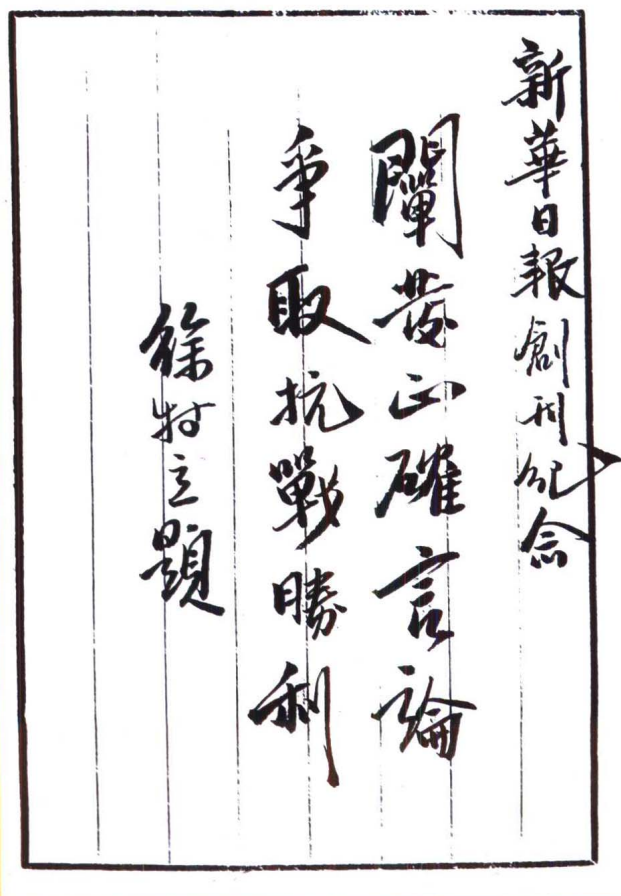 新華日報創刊紀念
闡發正確言論
爭取抗戰勝利
徐特立題